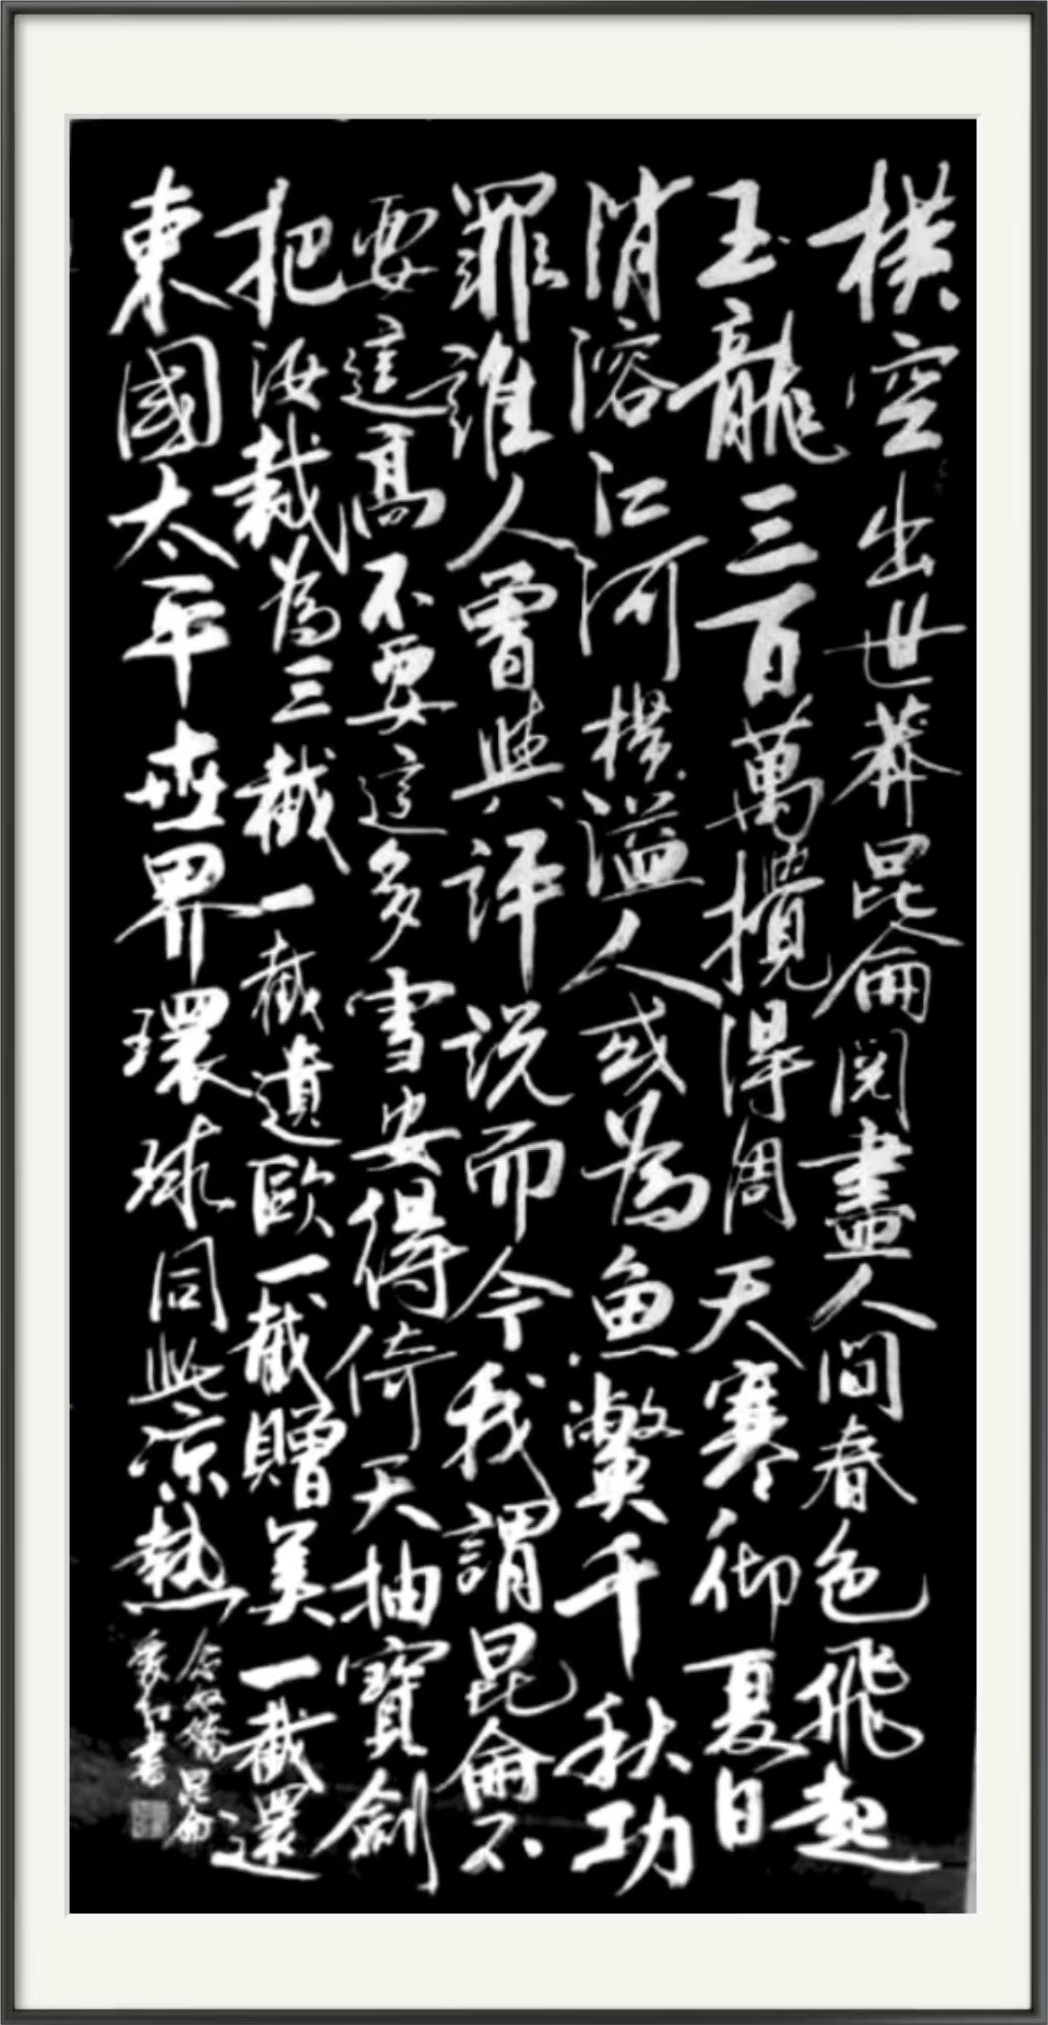 橫空出世莽昆侖閱盡人間春色飛起
玉龍三百萬攪得周天寒彻夏日
消溶江河橫溢人或為魚鱉千秋功
罪誰人曾與評說而今我謂昆侖不
要這高不要這多雪安得倚天抽寶劍
把汝裁為三截一截遺歐一截贈美一截還
東國太平世界環球同此涼熱
念奴嬌昆侖
書